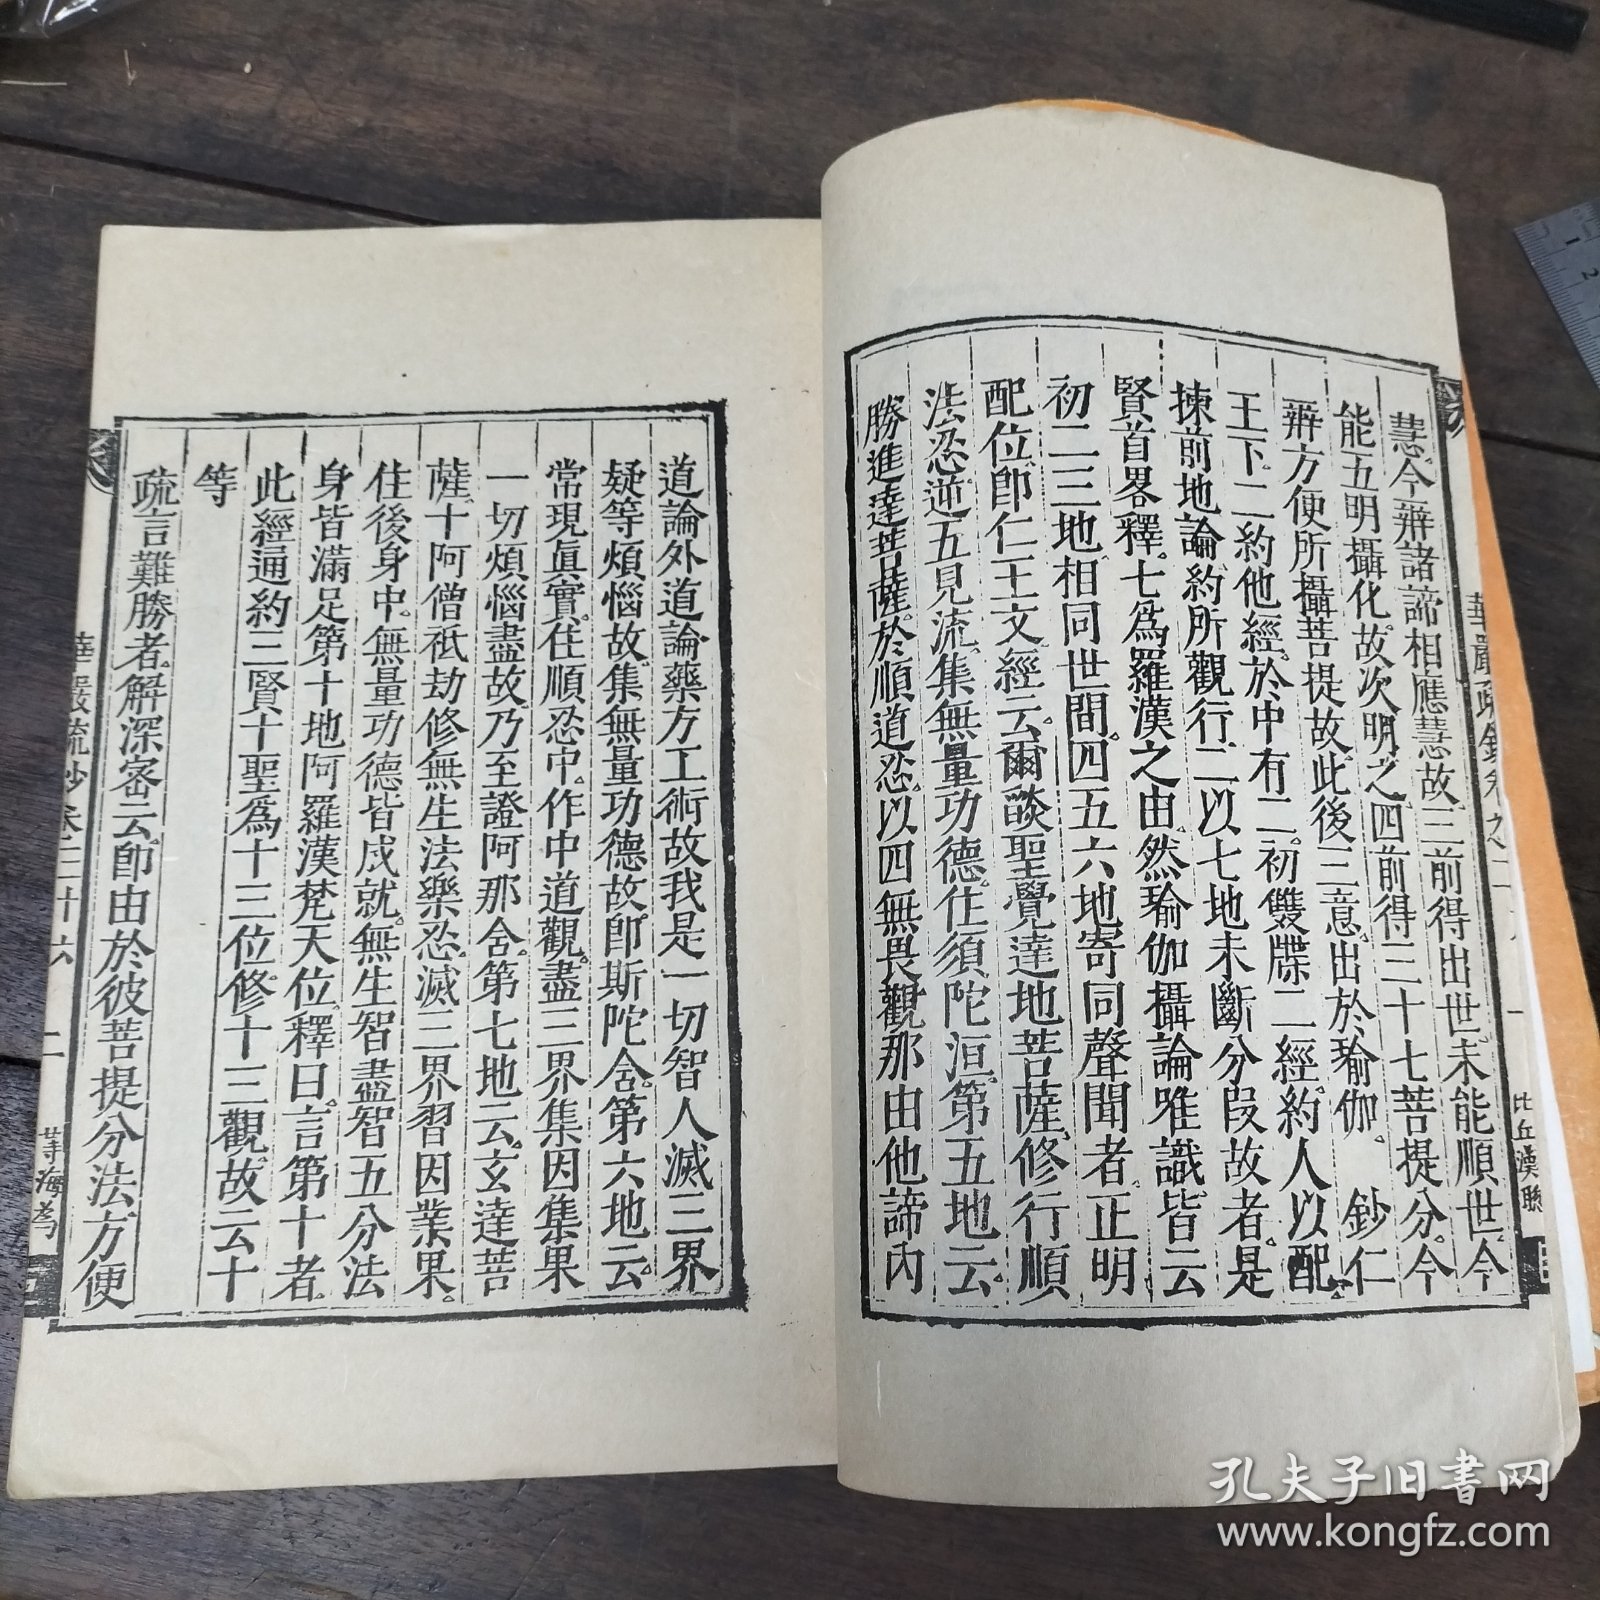 慧今辯諸諦相應慧故三前得出世未能順世今
能五明攝化故次明之四前得三十七菩提分今
辯方便所攝菩提故此後三意出於瑜伽 鈔仁
王下二約他經於中有二初雙牒二經約人以配
揀前地論約所觀行二以七地未斷分段故者是
賢首畧釋七爲羅漢之由然瑜伽攝論唯識皆云
初二三地相同世間四五六地寄同聲聞者正明
配位卽仁王文經云爾燄聖覺達地菩薩修行順
法忍逆五見流集無量功德住須陀洹第五地云
勝進達菩薩於順道忍以四無畏觀那由他諦內
道論外道論藥方工術故我是一切智人滅三界
疑等煩惱故集無量功德故卽斯陀含第六地云
常現眞實住順忍中作中道觀盡三界集因集果
一切煩惱盡故乃至證阿那含第七地云玄達菩
薩十阿僧祇劫修無生法樂忍滅三界習因業果
住後身中無量功德皆成就無生智盡智五分法
身皆滿足第十地阿羅漢梵天位釋曰言第十者
此經通約三賢十聖爲十三位修十三觀故云十
等
疏言難勝者解深密云卽由於彼菩提分法方便
華嚴疏鈔卷三十六 二
比丘漢聯
孔夫子旧书网
www.kongfz.com